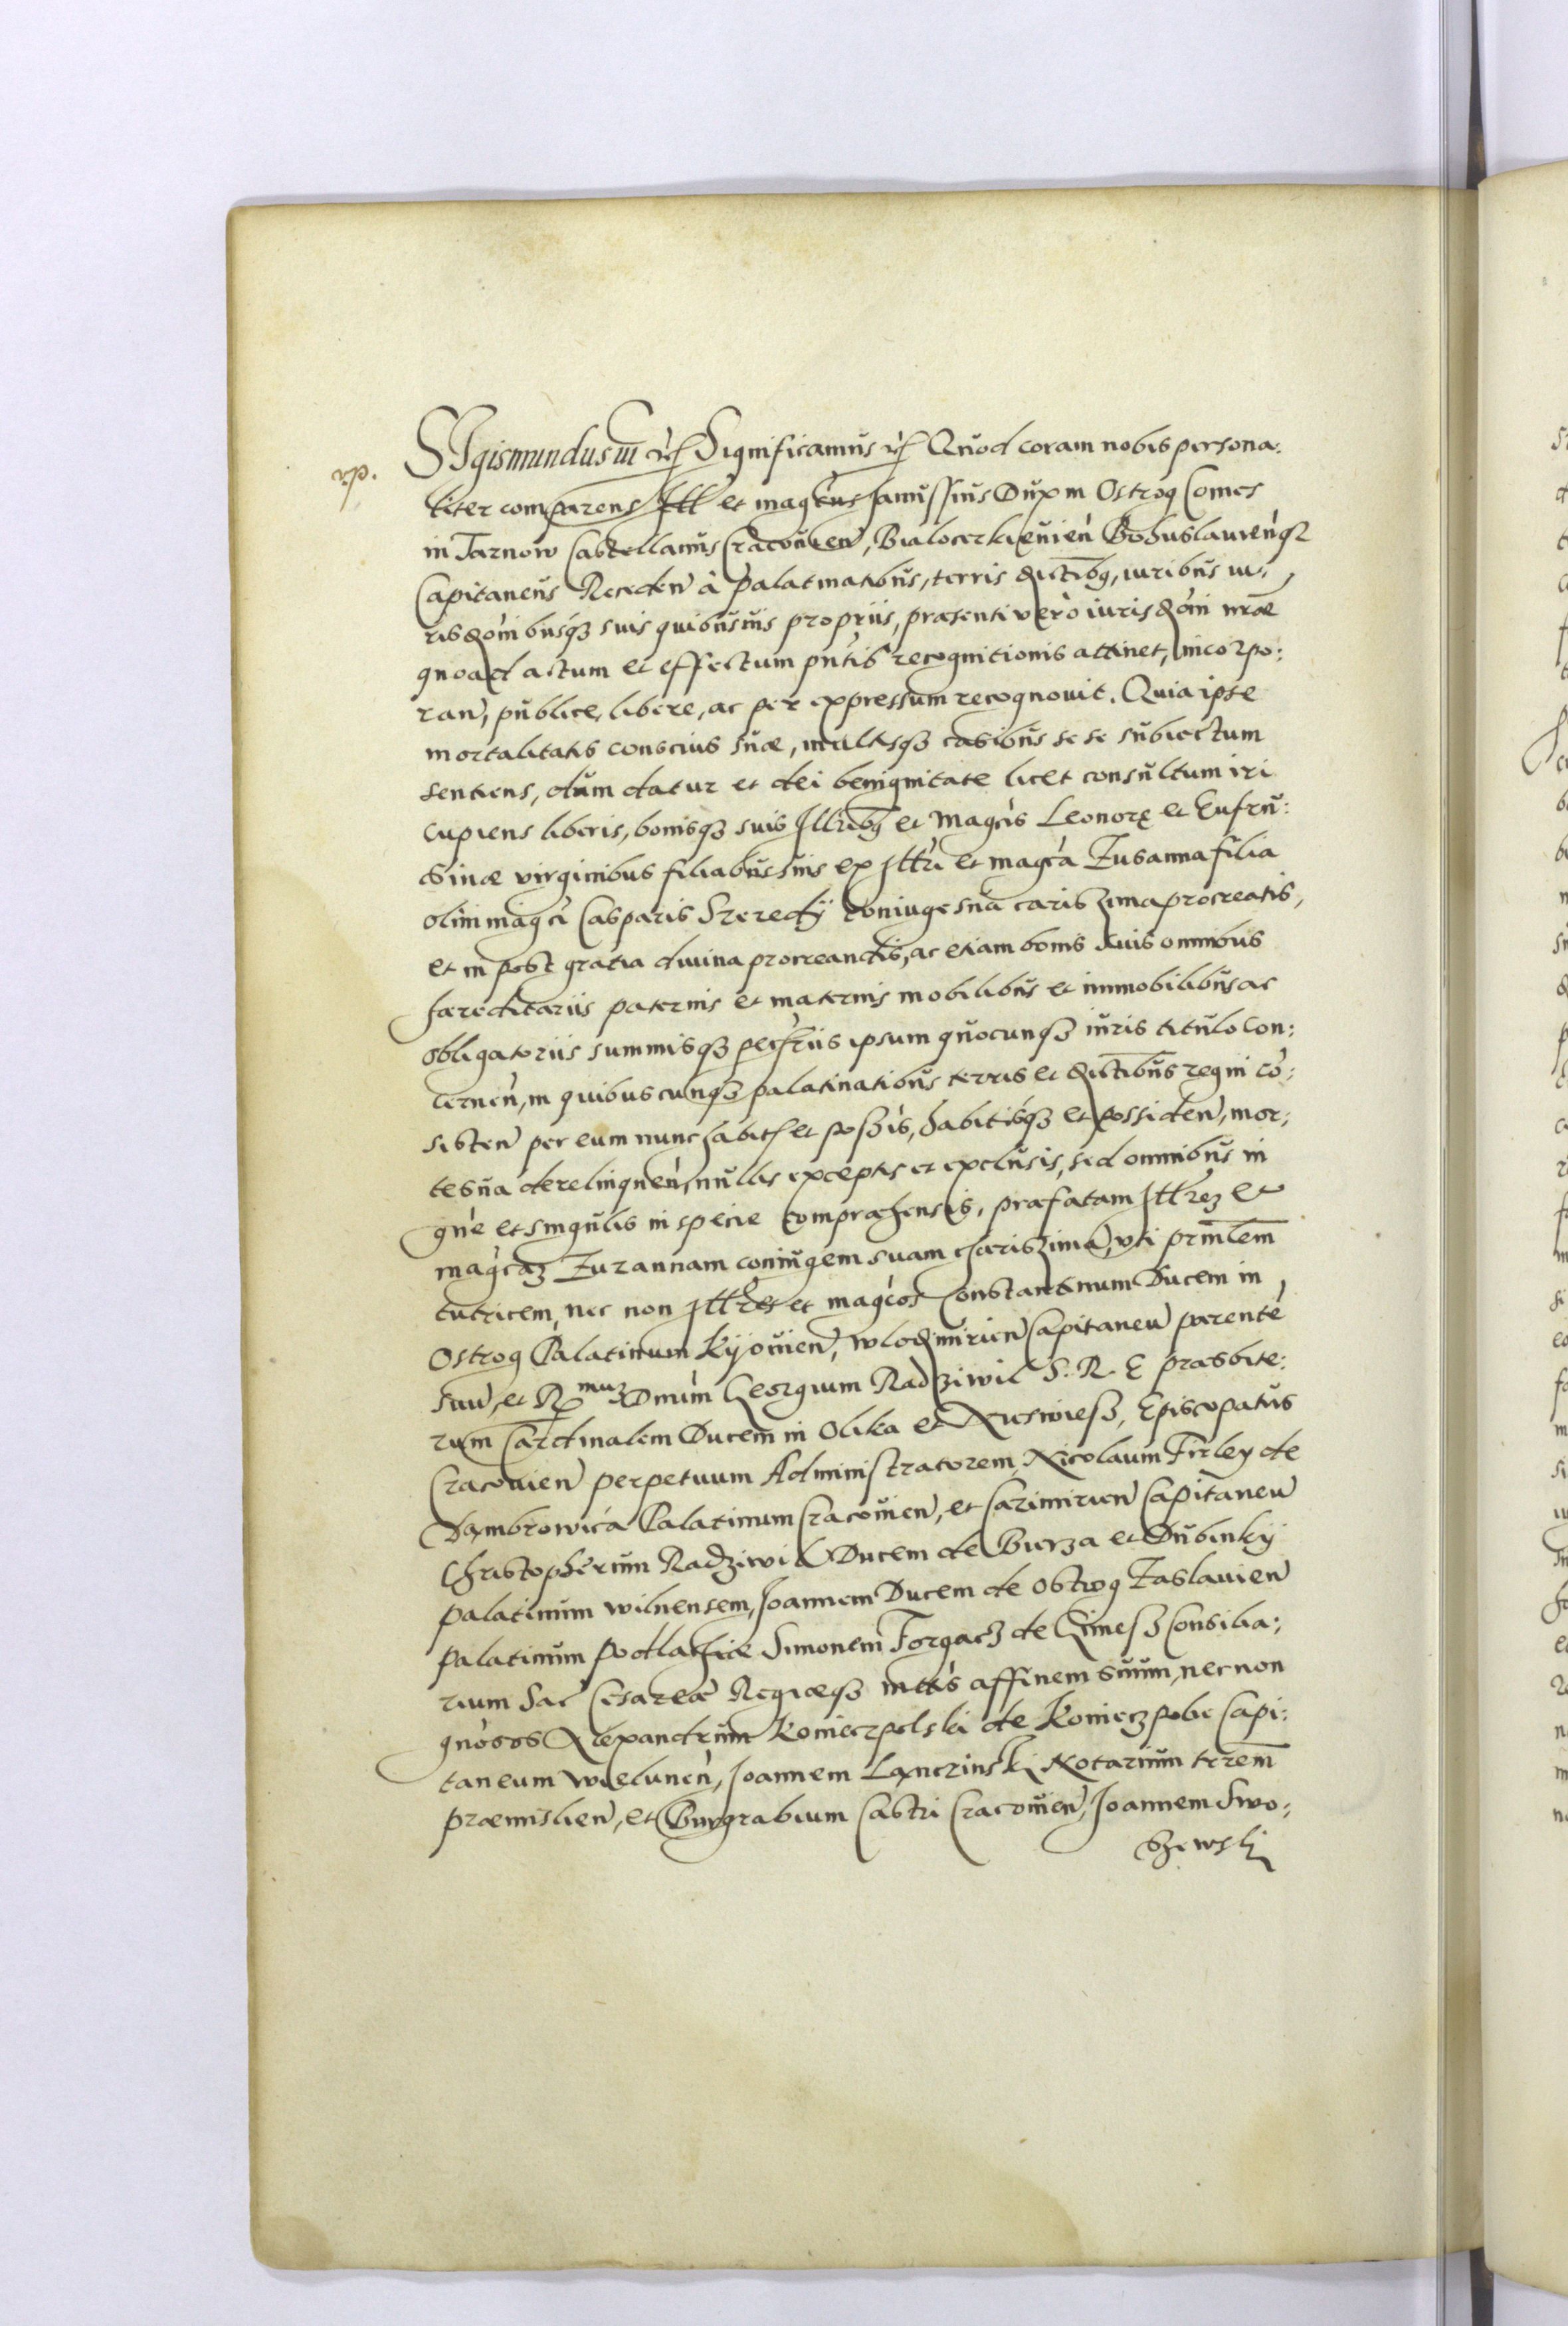 rp. SIgismundus III etc Significamus etc Quod coram nobis persona:
liter comparens Ill et magcus Janussius Dux in Ostrog Comes
in Tarnow Castellanus Cracovien, Bialocerkievien Bohuslavienq
Capitaneus Receden à palatinatibus, terris dictibq, iuribus iu:
risdonibusq suis quibusuis propriis, praesenti verò iurisdoni nrae
quoad actum et effectum pntis recognitionis attinet, incorpo:
ran, publice, libere, ac per expressum recognouit. Quia ipse
mortalitatis conscius suae, multisq casibus se se subiectum
sentiens, dum datur et dei benignitate licet consultum iri
cupiens liberis, bonisq suis Illribq et magcis Leonorę et Eufru:
sinae virginibus filiabus suis ex Illri et magca Zusanna filia
olim magci Casparis Szeredÿ coniuge sua carissima procreatis,
et in post gratia diuina procreandis, ac etiam bonis suis omnibus
haereditariis paternis et maternis mobilibus et immobilibus ac
obligatoriis summisq pecriis ipsum quocunq iuris titulo con:
cernen, in quibuscunq palatinatibus terris et dictibus regni co:
sisten per eum nunc habit et possis, habitisq et possiden, mor:
te sua derelinquen, nullis exceptis et exclusis, sed omnibus in
gne et singulis in specie compraehensis, praefatam Illrez et
magcaz Zuzannam coniugem suam charissima, vti prinlem
tutricem, nec non Illres et magcos Constantinum Ducem in
Ostrog Palatinum Kijovien, Wlodimirien Capitaneu parente
suu, et R muz Dnum Georgium Radziwil S. R. E praesbite:
rum Cardinalem Ducem in Olika et Nieswiess, Episcopatus
Cracovien perpetuum Administratorem, Nicolaum Firley de
Dambrowica Palatinum Cracovien, et Cazimirien Capitaneu
Christopherum Radziwil Ducem de Birza et Dubinkÿ
palatinum wilnensem, Joannem Ducem de Ostrog Zaslauien
palatinum podlachiae Simonem Forgacz de Gimess Consilia:
rium Sac Cesareae Regiaeq mttis affinem suum, nec non
gnosos Alexandrum Koniecpolski de Koniecpole Capi:
taneum wielunen, Joannem Lanczinski Notarium terem
praemislien, et Burgrabium Castri Cracovien, Joannem Swo:
szewski